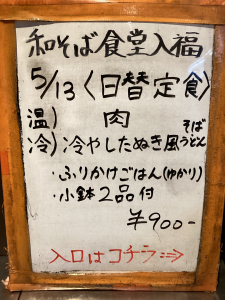 和そば食堂入福
5/13〈日替定食〉
温) 肉
冷) 冷やしたぬき風 そば うどん
・ふりかけごはん(ゆかり)
・小鉢2品付
¥900-
入口はコチラ⇒